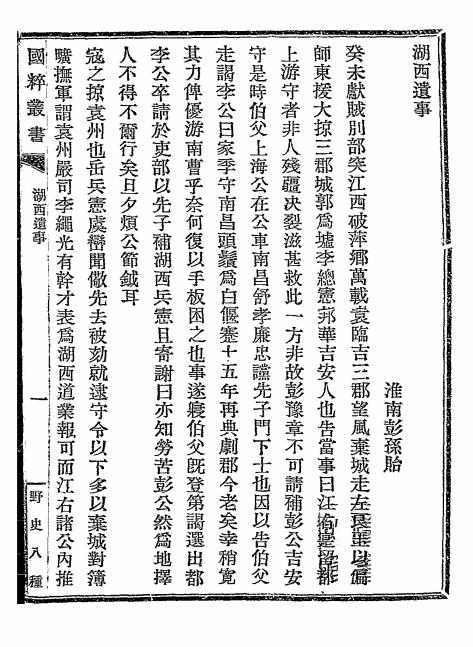 湖西遺事
淮南彭孫貽
癸未獻賊別部突江西破萍鄉萬載袁臨吉三郡望風棄城走左良玉以偏
師東援大掠三郡城郭爲墟李總憲邦華吉安人也告當事曰江右
上游守者非人殘疆決裂滋甚救此一方非故彭豫章不可請補彭公吉安
守是時伯父上海公在公車南昌舒孝廉忠讜先子門下士也因以告伯父
走謁李公曰家季守南昌頭鬚爲白偃蹇十五年再典劇郡今老矣幸稍寬
其力俾優游南曹乎奈何復以手板困之也事遂寢伯父旣登第謁選出都
李公卒請於吏部以先子補湖西兵憲且寄謝曰亦知勞苦彭公然爲地擇
人不得不爾行矣旦夕煩公節鉞耳
寇之掠袁州也岳兵憲虞巒聞儆先去被劾就逮守令以下多以棄城對簿
曠撫軍謂袁州嚴司李繩光有幹才表爲湖西道業報可而江右諸公內推
國粹叢書
湖西遺事
一
野史八種